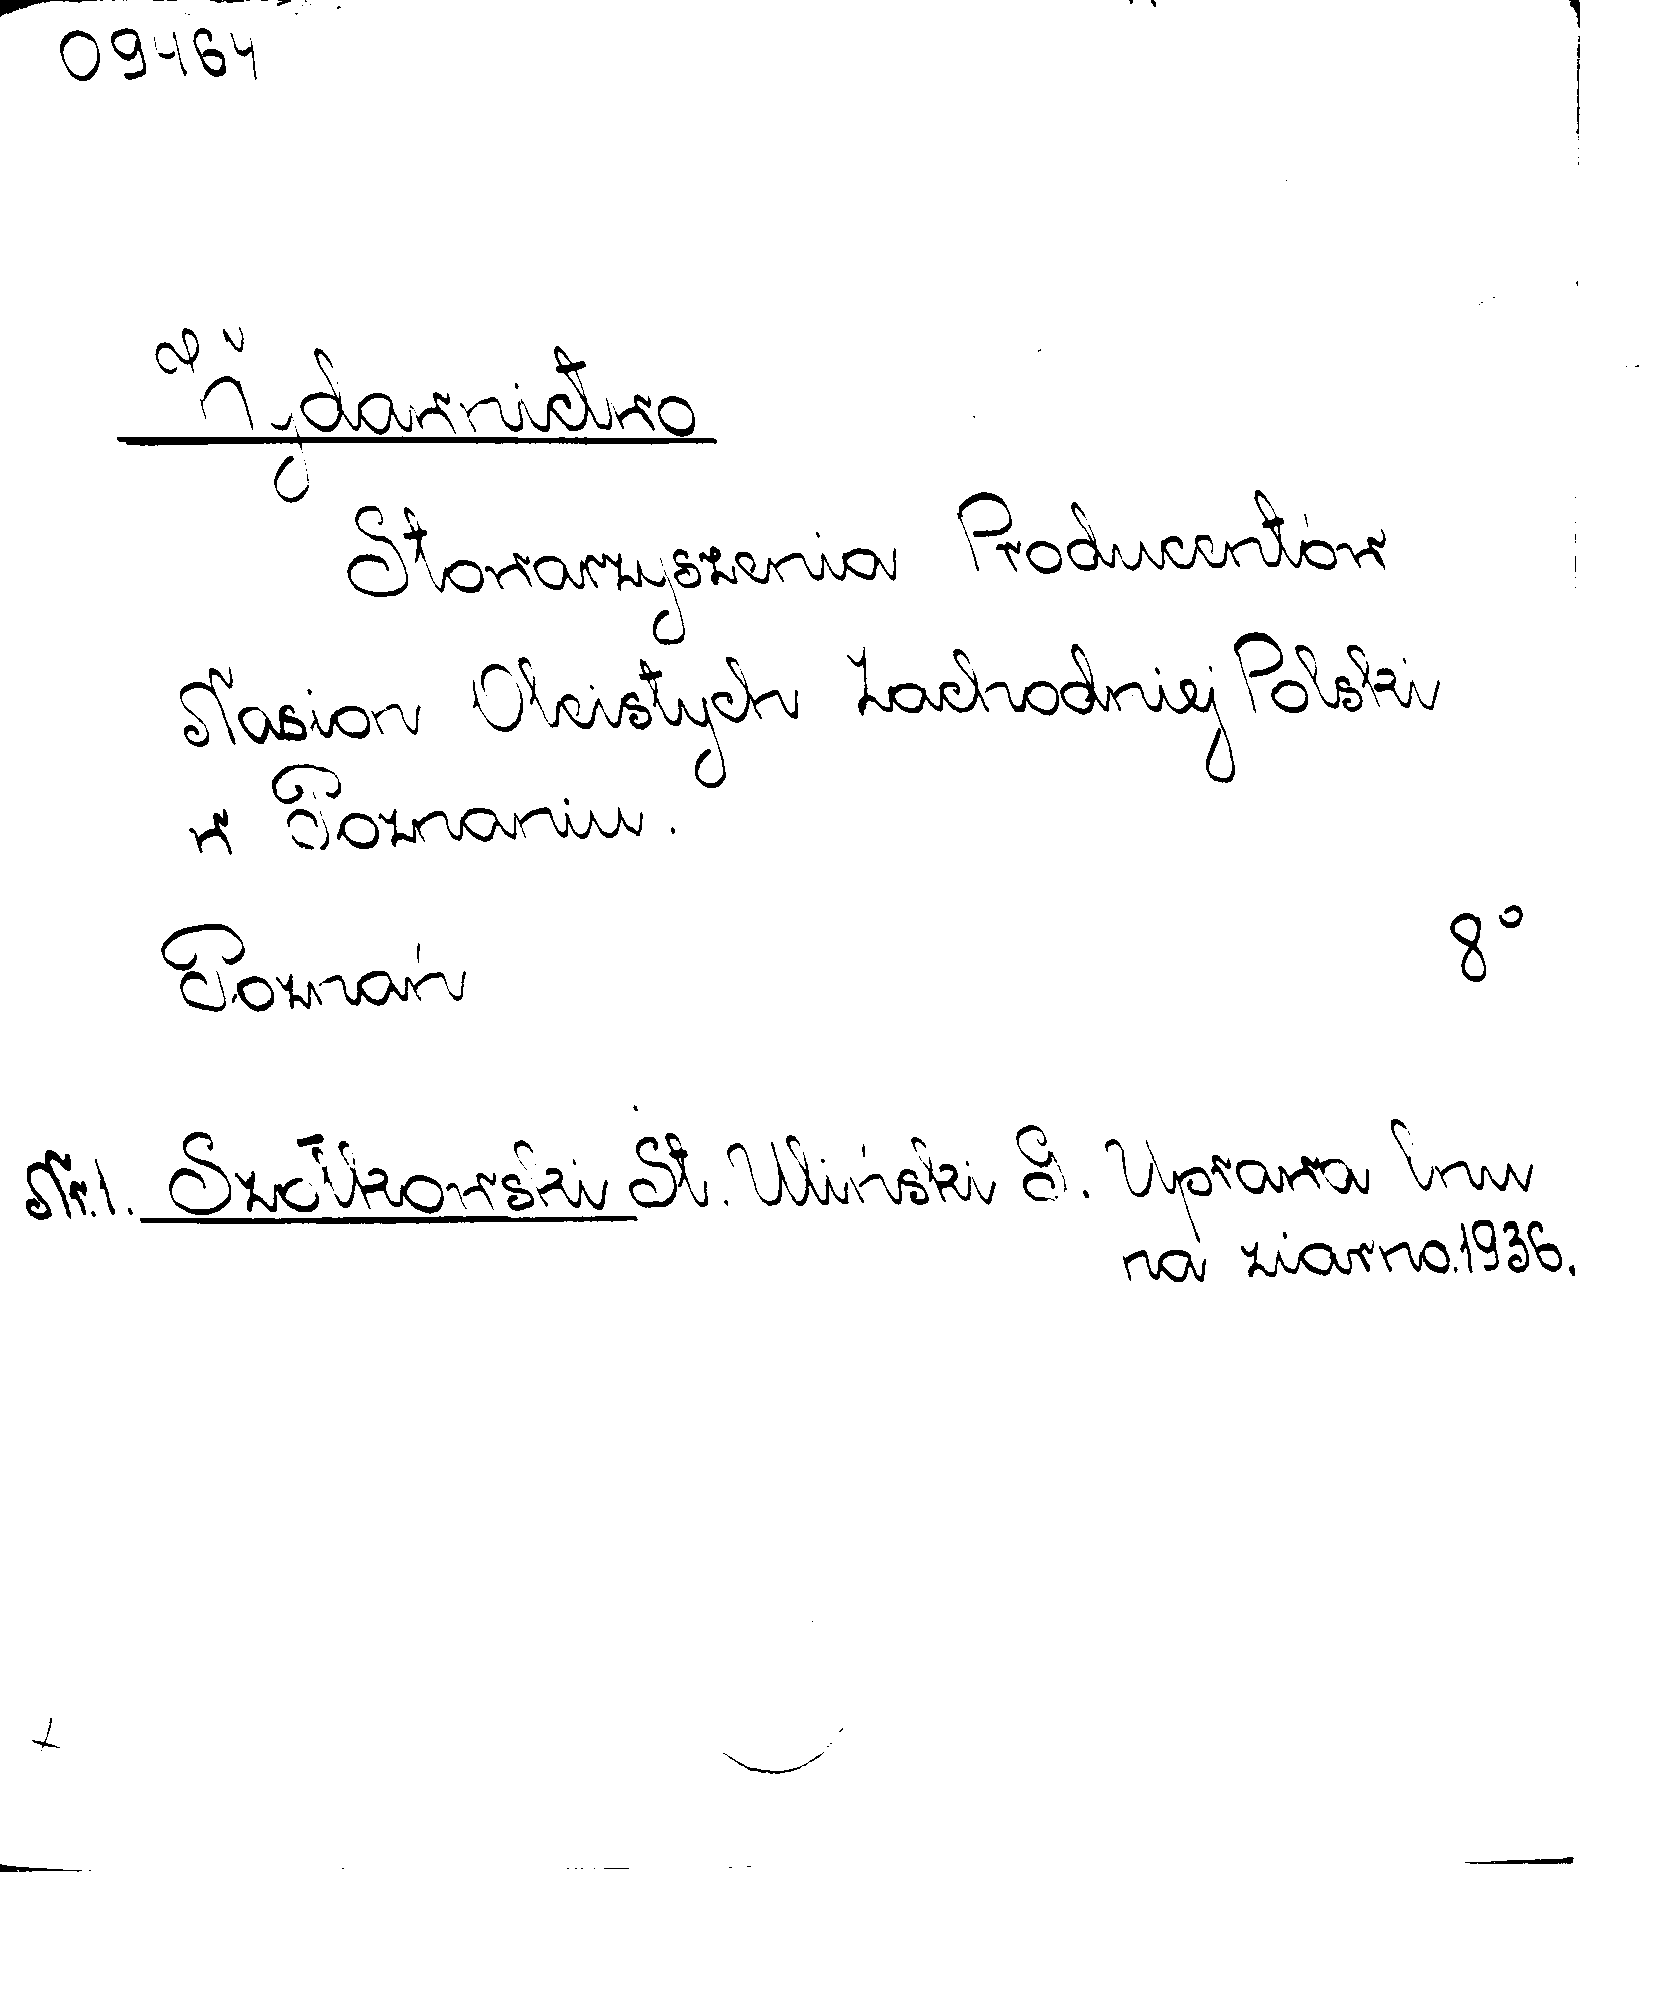 09464
Wydawnictwo
Stowarzyszenia Producentów
Nasion Oleistych Zachodniej Polski
w Poznaniu.
Poznań 8°
Nr.1. Szołkowski St. Uliński G. Uprawa lnu
na ziarno.1936.